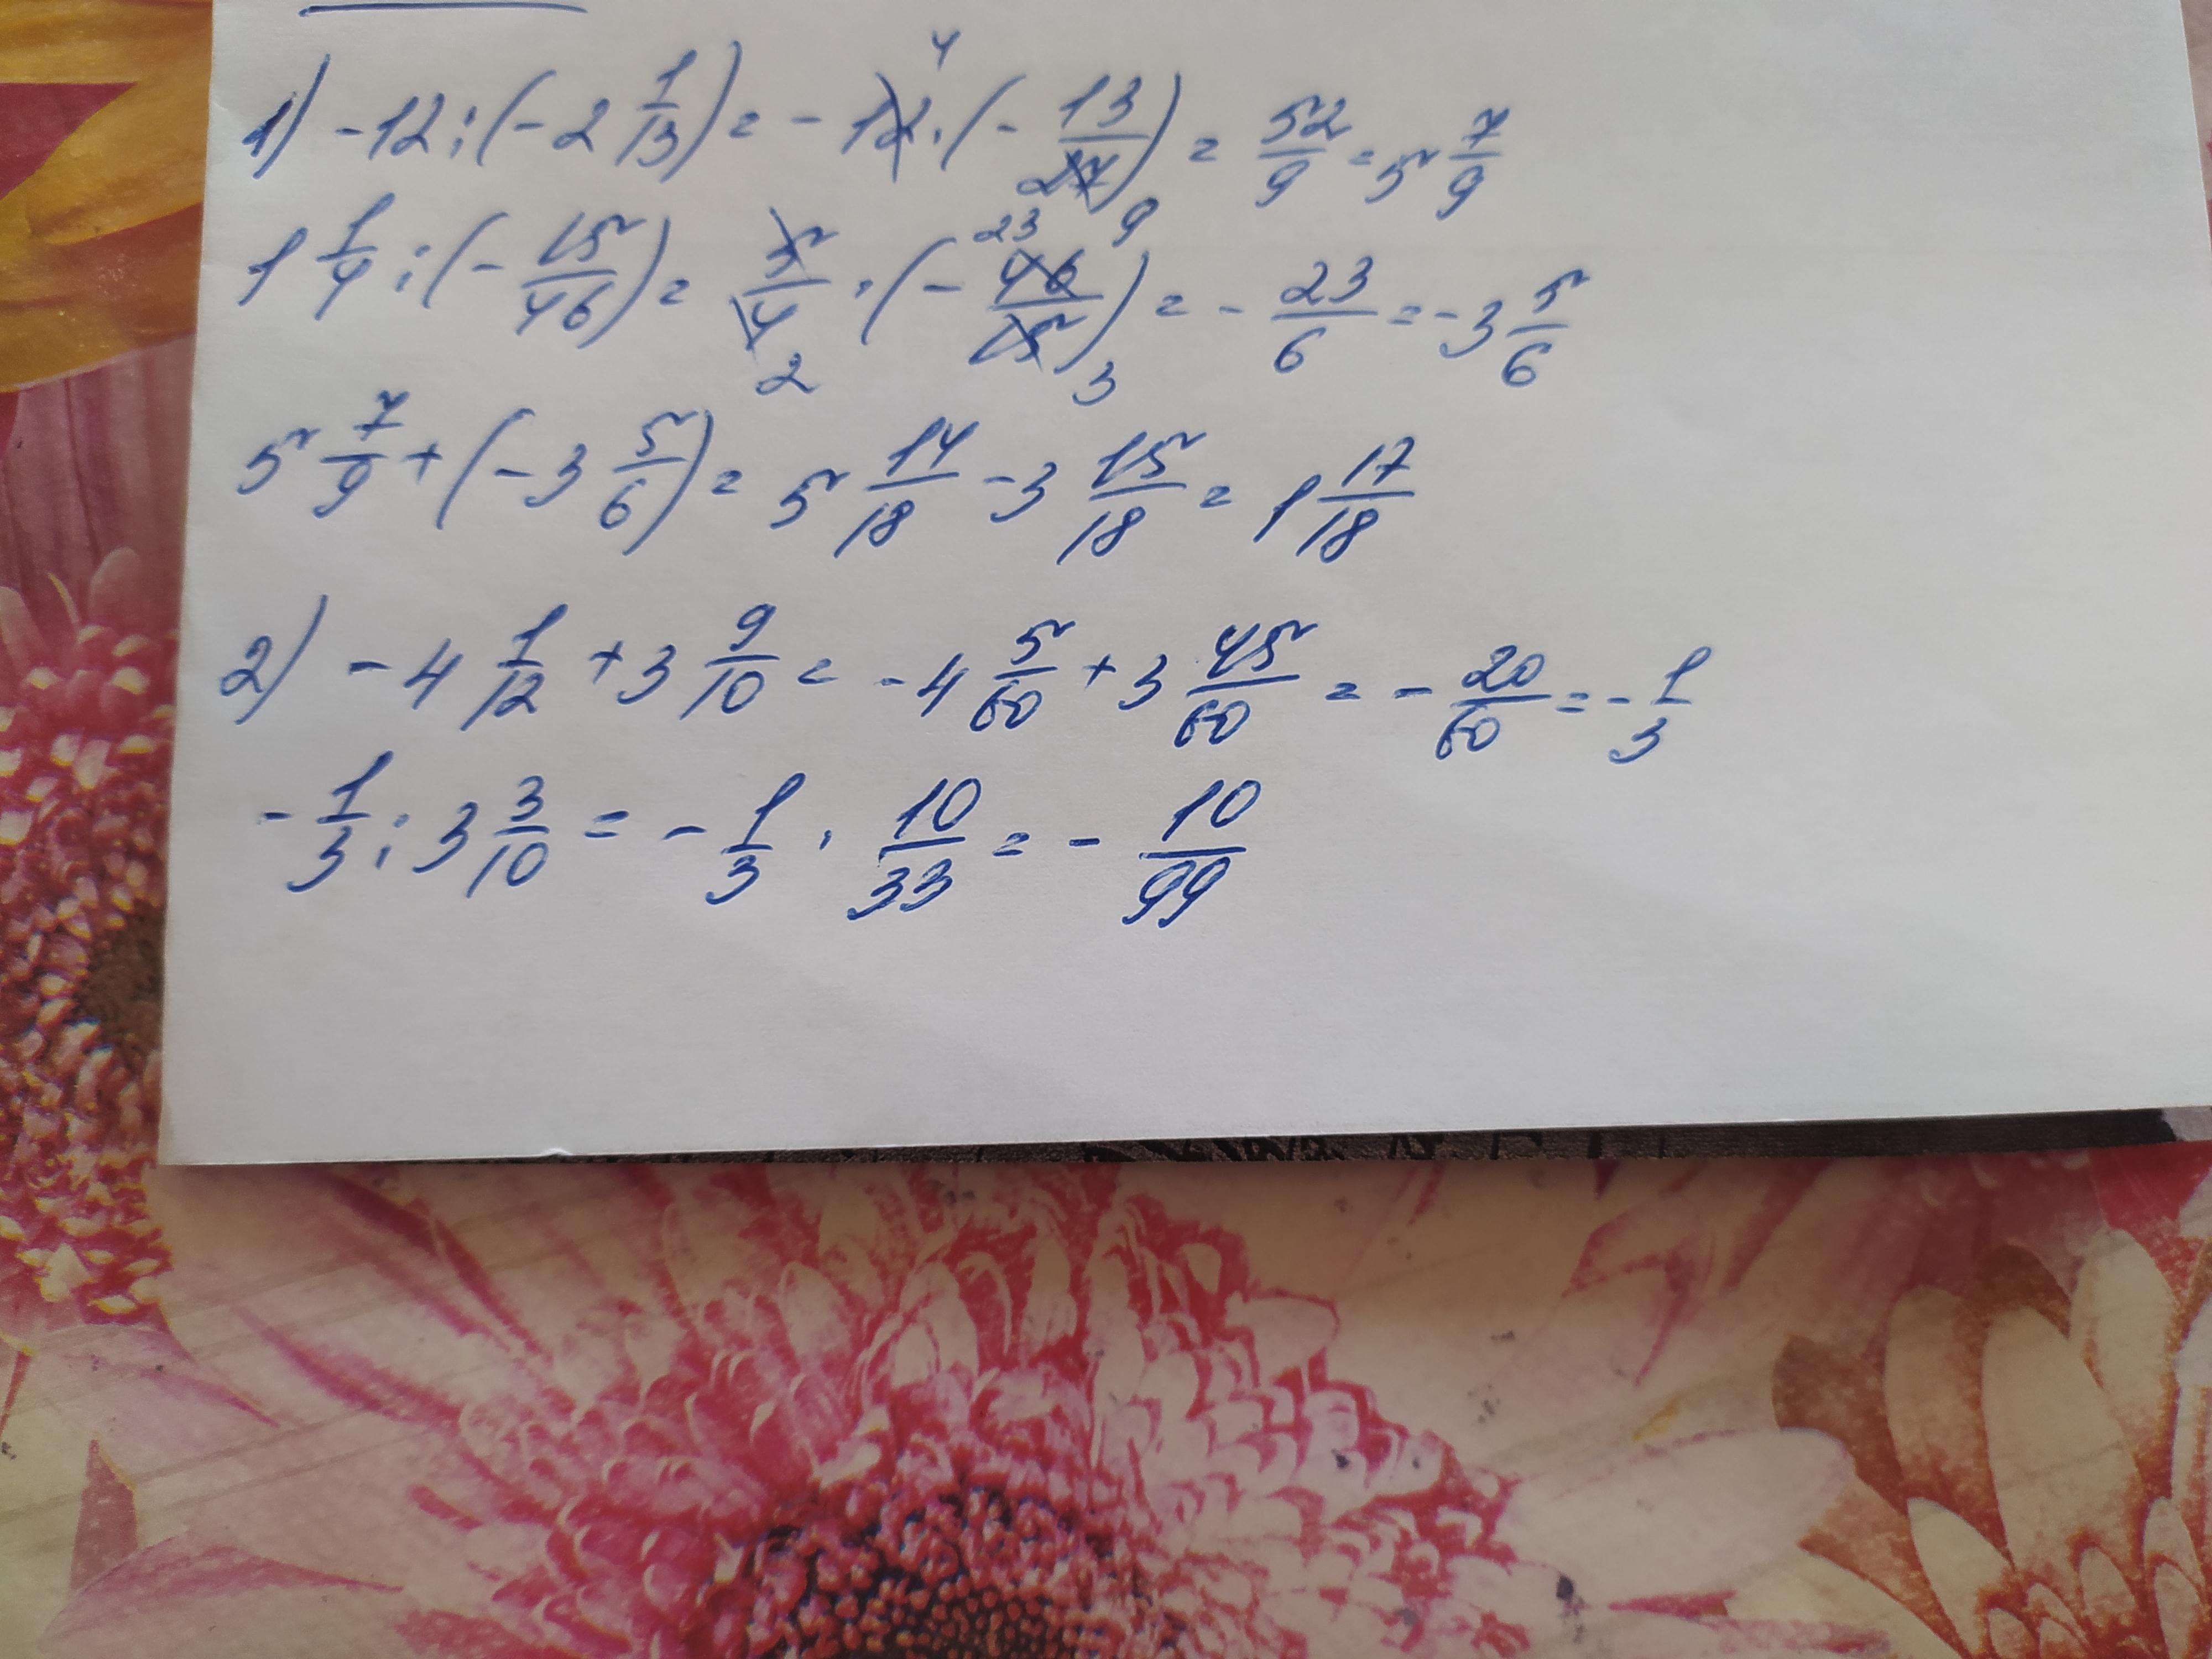 1) -12 : (-2 1/13) = -12 · (-13/27) = 52/9 = 5 7/9
1 1/4 : (-15/46) = 5/4 · (-46/15) = -23/6 = -3 5/6
5 7/9 + (-3 5/6) = 5 14/18 - 3 15/18 = 1 17/18
2) -4 1/12 + 3 9/10 = -4 5/60 + 3 45/60 = -20/60 = -1/3
-1/3 : 3 3/10 = -1/3 · 10/33 = -10/99